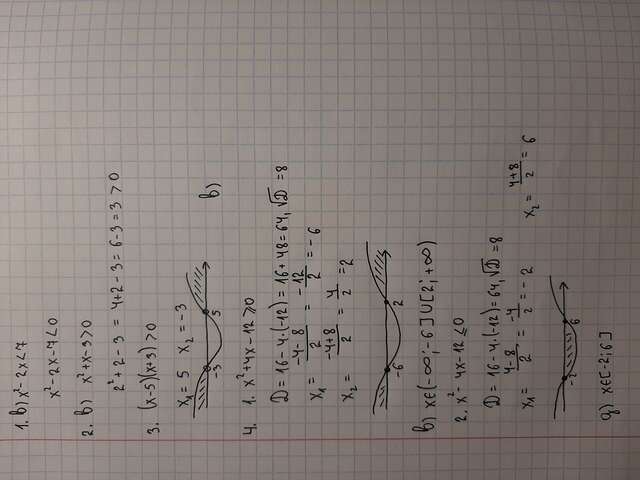 1. в) x² - 2x < 7
x² - 2x - 7 < 0
2. в) x² + x - 3 > 0
2² + 2 - 3 = 4 + 2 - 3 = 6 - 3 = 3 > 0
3. (x-5)(x+3) > 0
x₁ = 5 x₂ = -3
-3 5
в)
4. 1. x² + 4x - 12 ≥ 0
D = 16 - 4·(-12) = 16 + 48 = 64, √D = 8
x₁ = (-4-8)/2 = -12/2 = -6
x₂ = (-4+8)/2 = 4/2 = 2
-6 2
в) x∈(-∞; -6]∪[2; +∞)
2. x² - 4x - 12 ≤ 0
D = 16 - 4·(-12) = 64, √D = 8
x₁ = (4-8)/2 = -4/2 = -2 x₂ = (4+8)/2 = 6
-2 6
д) x∈[-2; 6]